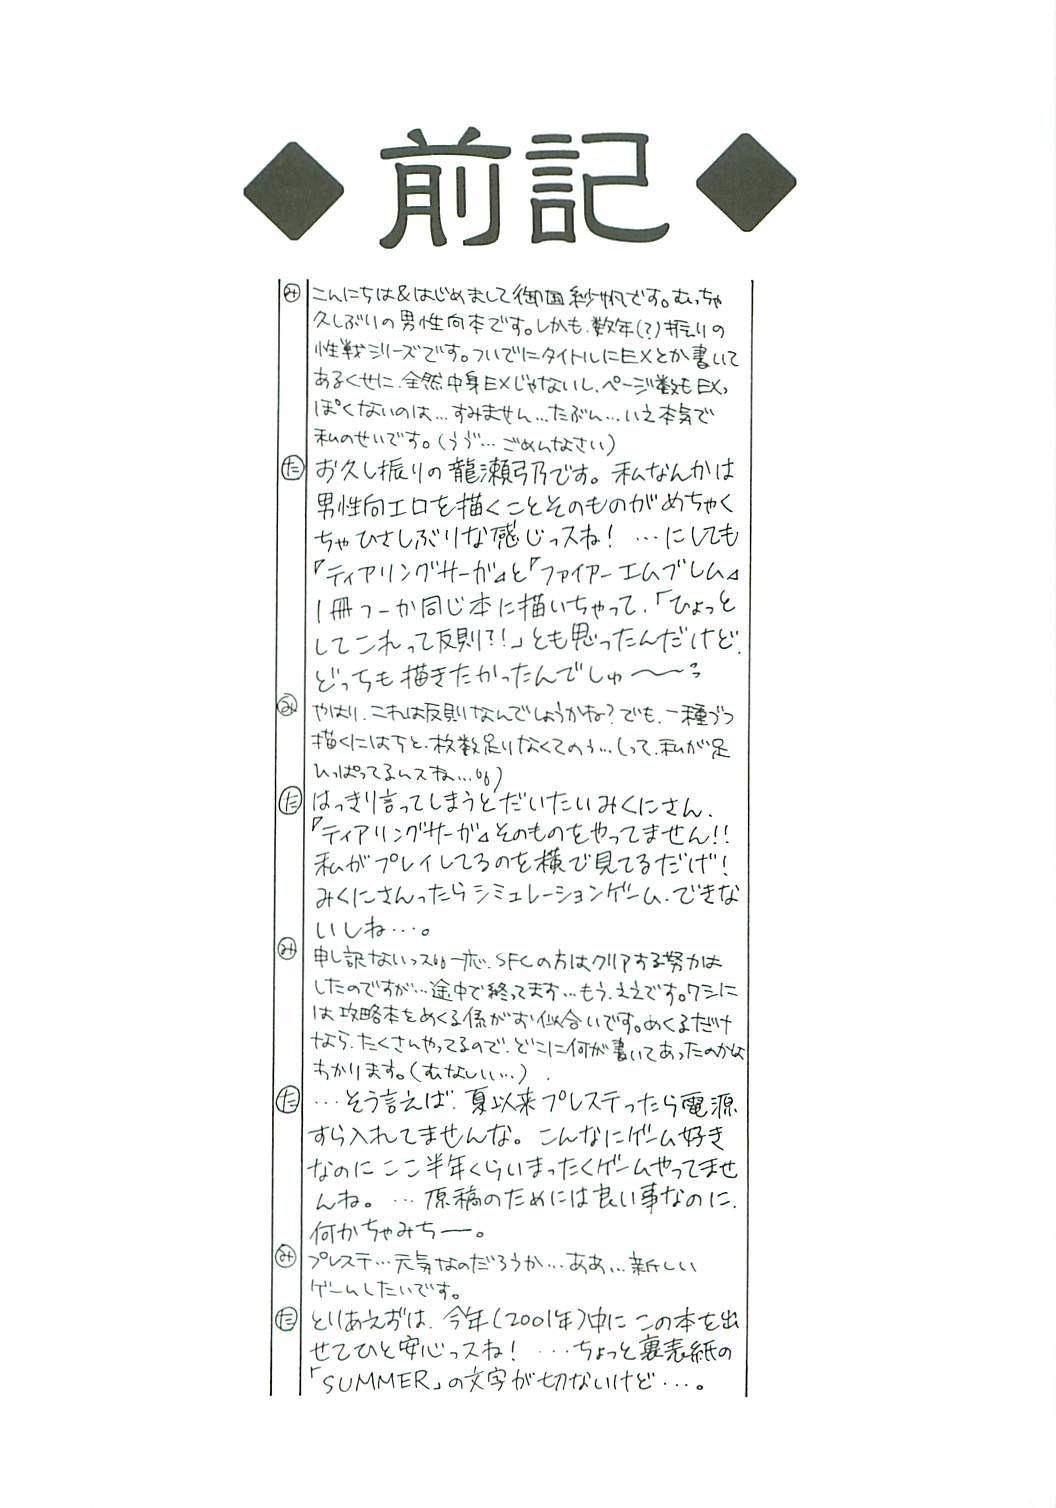 ◆前記◆
み こんにちは&はじめまして御国紗帆です。むっちゃ
久しぶりの男性向本です。しかも、数年(?)振りの
性戦シリーズです。ついでにタイトルにEXとか書いて
あるくせに、全然中身EXじゃないし、ページ数もEXっ
ぽくないのは…すみません…たぶん…いえ本気で
私のせいです。(うゔ…ごめんなさい)
た お久し振りの龍瀬弓乃です。私なんかは
男性向エロを描くことそのものがめちゃく
ちゃひさしぶりな感じっスね! …にしても
『ティアリングサーガ』と『ファイアーエムブレム』
1冊つーか同じ本に描いちゃって、「ひょっと
してこれって反則?!」とも思ったんだけど、
どっちも描きたかったんでしゅ〜〜
み やはり、これは反則なんでしょうかね?でも、一種づつ
描くにはちと、枚数足りなくてのう…(って、私が足
ひっぱってるんスね…)
た はっきり言ってしまうとだいたいみくにさん、
『ティアリングサーガ』そのものをやってません!!
私がプレイしてるのを横で見てるだけ!
みくにさんったらシミュレーションゲーム、できな
いしね…。
み 申し訳ないっス 一応、SFCの方はクリアする努力は
したのですが…途中で終ってます…もう、ええです。ワシに
は攻略本をめくる係がお似合いです。めくるだけ
なら、たくさんやってるので、どこに何が書いてあったのかわ
かります。(むなしい…)
た …そう言えば、夏以来プレステったら電源
すら入れてませんな。こんなにゲーム好き
なのにここ半年くらいまったくゲームやってませ
んね。…原稿のためには良い事なのに、
何かちゃみちー。
み プレステ…元気なのだろうか…ああ…新しい
ゲームしたいです。
た とりあえずは、今年(2001年)中にこの本を出
せてひと安心っスね! …ちょっと裏表紙の
「SUMMER」の文字が切ないけど…。